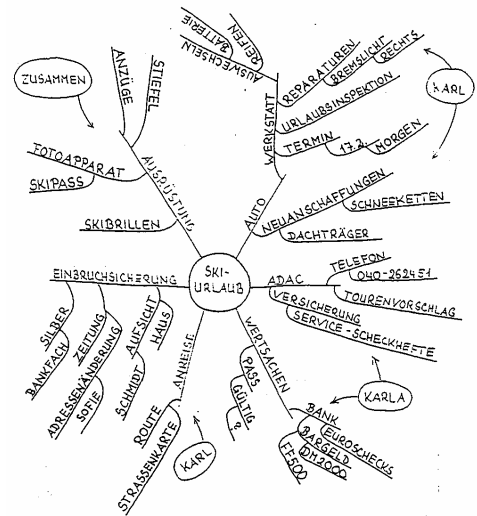 SKI-
URLAUB
AUSRÜSTUNG
ANZÜGE
STIEFEL
FOTOAPPARAT
SKIPASS
SKIBRILLEN
ZUSAMMEN
AUTO
WERKSTATT
AUSWECHSELN
BATTERIE
REIFEN
REPARATUREN
BREMSLICHT
RECHTS
URLAUBSINSPEKTION
TERMIN
17.2.
MORGEN
NEUANSCHAFFUNGEN
SCHNEEKETTEN
DACHTRÄGER
KARL
ADAC
TELEFON
040-262451
TOURENVORSCHLAG
VERSICHERUNG
SERVICE-SCHECKHEFTE
KARLA
WERTSACHEN
BANK
EUROSCHECKS
BARGELD
DM2000
FF500
PASS
GÜLTIG
?
ANREISE
ROUTE
STRASSENKARTE
KARL
EINBRUCHSICHERUNG
SILBER
BANKFACH
ZEITUNG
ADRESSENÄNDERUNG
SOFIE
AUFSICHT
HAUS
SCHMIDT